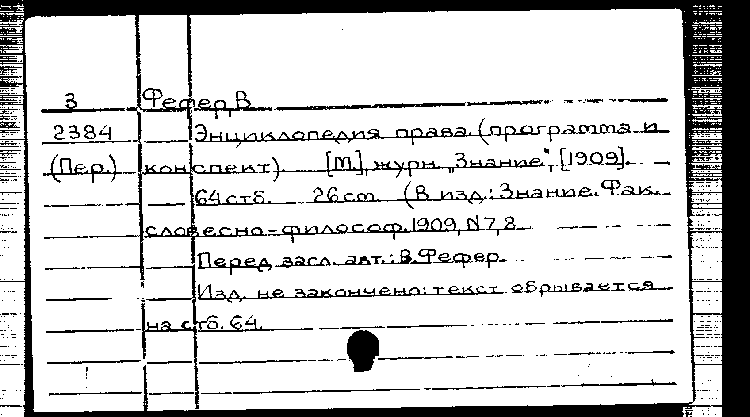 3 Фефер, В
2384 Энциклопедия права (программа и
(Пер.) конспект). [М], журн. „Знание", [1909].
64 стб. 26 cm. (В изд.: Знание. Фак.
словесно-философ. 1909, N 7, 8
Перед загл. авт.: В. Фефер.
Изд. не закончено: текст обрывается
на стб. 64.